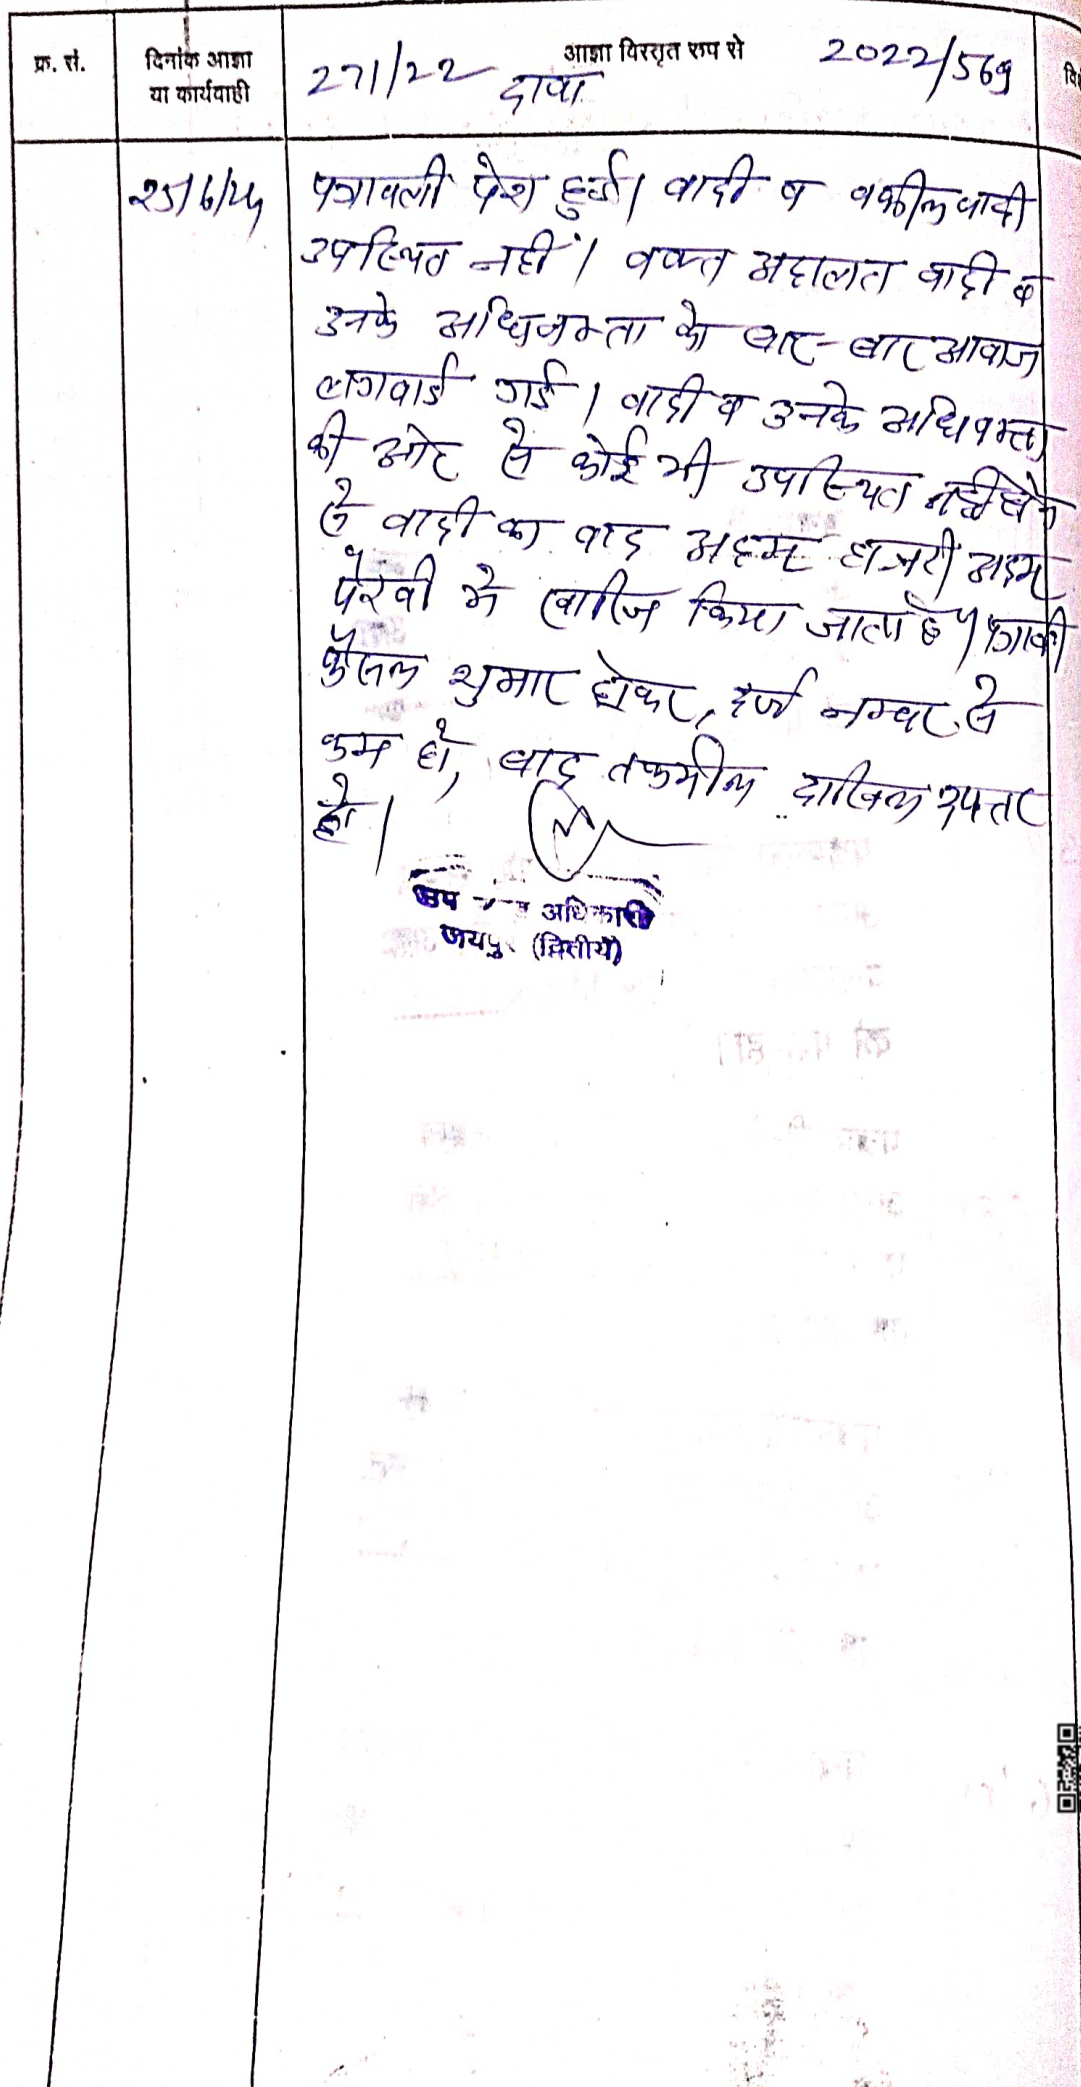 क्र. सं. दिनांक आज्ञा या कार्यवाही आज्ञा विस्तृत रूप से
271/22 दावा 2022/569
25/6/24 पत्रावली पेश हुई। वादी व वकील वादी
उपस्थित नहीं। वक्त अदालत वादी व
उनके अधिवक्ता को बार-बार आवाज
लगवाई गई। वादी व उनके अधिवक्ता
की ओर से कोई भी उपस्थित नहीं होने
से वादी का वाद अदम हाजरी अदम
पैरवी में खारिज किया जाता है। पत्रावली
फैसल शुमार होकर, दर्ज नम्बर से
कम हो, बाद तकमील दाखिल दफ्तर
हो।
उप अधिकारी
जयपुर (द्वितीय)